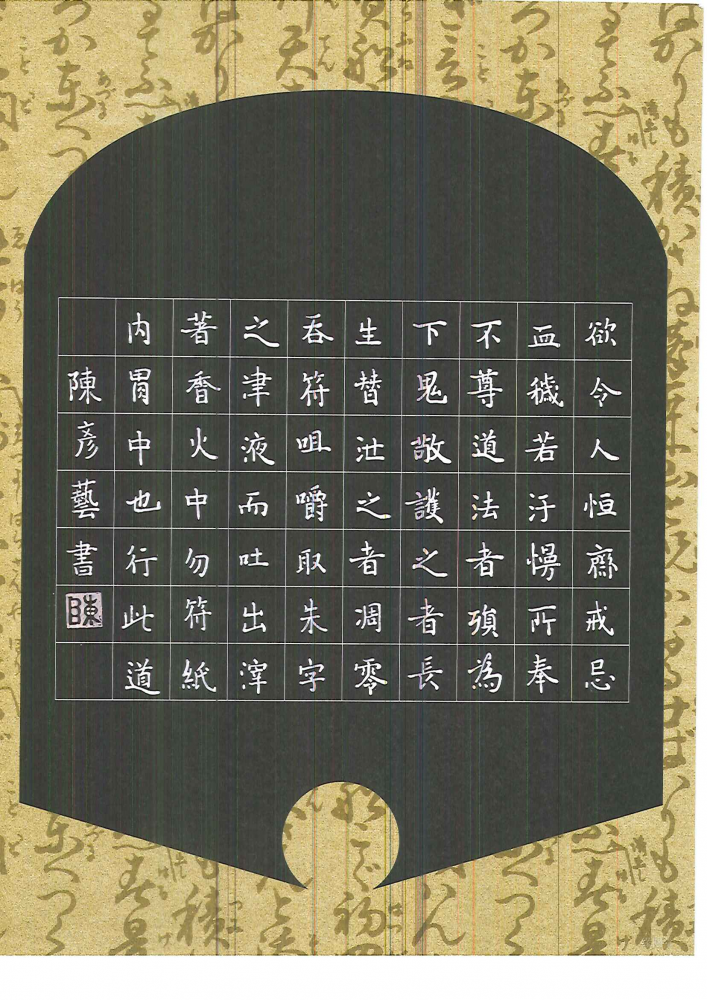 欲令人恒齋戒忌
血穢若汙慢所奉
不尊道法者殞為
下鬼敬護之者長
生替泄之者凋零
吞符咀嚼取朱字
之津液而吐出滓
著香火中勿符紙
内胃中也行此道
陳彥藝書
陳